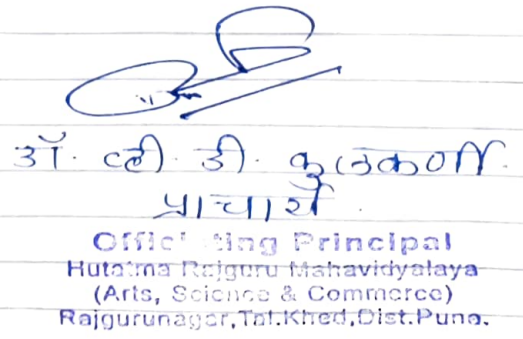 डॉ. व्ही. डी. कुलकर्णी.
प्राचार्य.
Officiating Principal
Hutatma Rajguru Mahavidyalaya
(Arts, Science & Commerce)
Rajgurunagar, Tal. Khed, Dist. Pune.